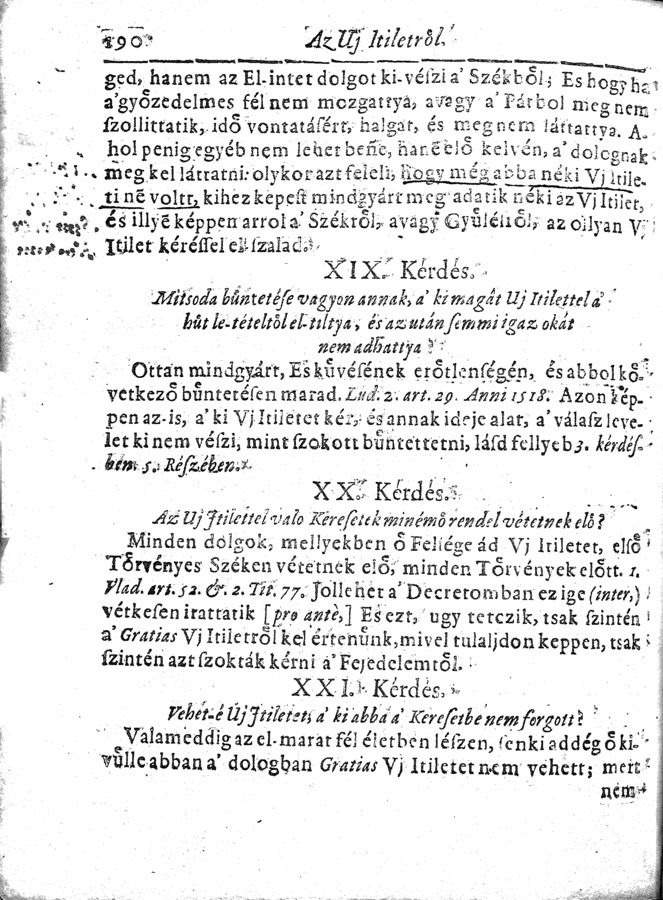 190 Az Uj Itiletrôl.
ged, hanem az El-intet dolgot ki-vészi a' Székbôl; Es hogy ha
a' gyôzedelmes fél nem mozgattya, avagy a' Pártol meg nem
ſzollittatik, idô vontatásért, halgat, és meg nem láttattya. A-
hol penig egyéb nem lehet bene, hanē elô kelvén, a' dolognak
meg kel láttatni: olykor azt feleli, hogy még abba néki Vj Itile-
ti nē voltt, kihez kepest mindgyárt meg adatik néki az Vj Itilet,
és illyē képpen arrol a' Székrôl, avagy Gyüléſrôl, az ollyan Vj
Itilet kéréſſel el-ſzalad.
XIX. Kérdés.
Mitsoda bûntetéſe vagyon annak, a' ki magát Uj Itilettel a'
hût le-tételtôl el-tiltya, és az után ſemmi igaz okát
nem adhattya?
Ottan mindgyárt, Eskûvéſének erôtlenségén, és abbol kô-
vetkezô bûntetéſen marad. Lud. 2. art. 29. Anni 1518. Azon kép-
pen az-is, a' ki Vj Itiletet kér, és annak ideje alat, a' válasz leve-
let ki nem vészi, mint ſzokott bûntettetni, láſd fellyeb 3. kérdéſ-
ben 5. Réſzében.
XX. Kérdés.
Az Uj Itilettel valo Kereſetek minémô rendel vétetnek elô?
Minden dolgok, mellyekben ô Felſége ád Vj Itiletet, elſô
Tôrvényes Széken vétetnek elô, minden Tôrvények elôtt. 1.
Vlad. art. 52. &. 2. Tit. 77. Jollehet a' Decretomban ez ige (inter,)
vétkeſen irattatik [pro antè,] Es ezt, ugy tetczik, tsak ſzintén
a' Gratias Vj Itiletrôl kel értenûnk, mivel tulaljdon keppen, tsak
ſzintén azt ſzokták kérni a' Fejedelemtôl.
XXI. Kérdés.
Vehet-é Uj Itiletet, a' ki abba a' Kereſetbe nem forgott?
Valameddig az el-marat fél életben léſzen, ſenki addég ô ki-
vûlle abban a' dologban Gratias Vj Itiletet nem vehett; mert
nem